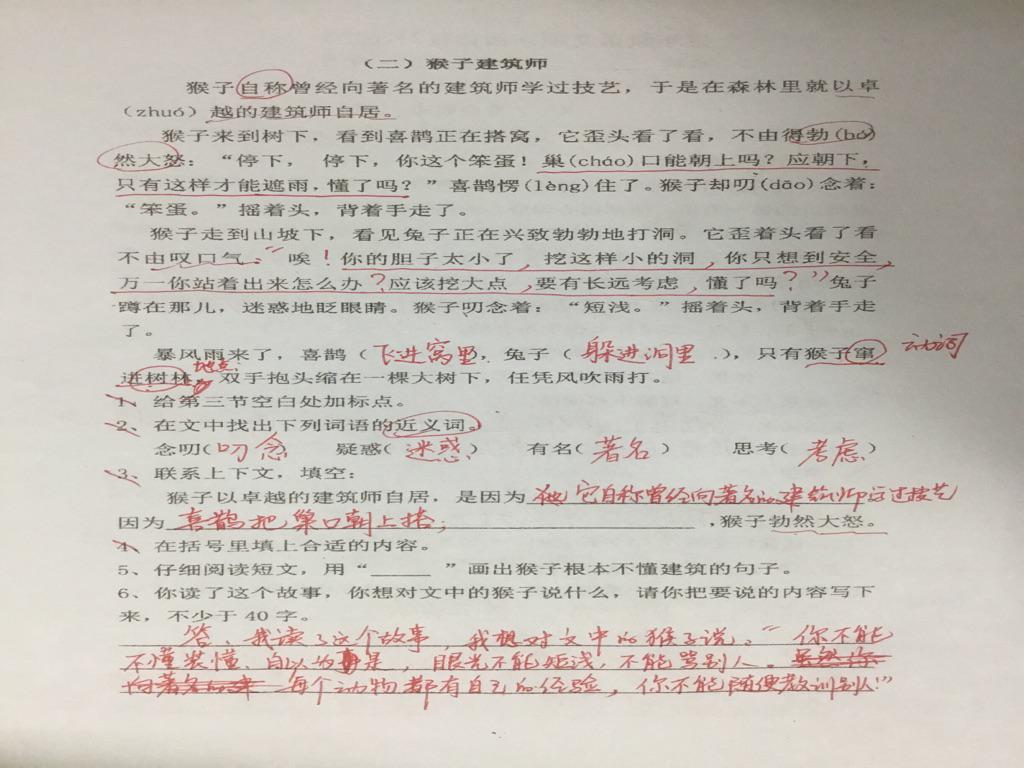 （二）猴子建筑师
猴子自称曾经向著名的建筑师学过技艺，于是在森林里就以卓
（zhuó）越的建筑师自居。
猴子来到树下，看到喜鹊正在搭窝，它歪头看了看，不由得勃(bó)
然大怒：“停下， 停下，你这个笨蛋！巢(cháo)口能朝上吗？应朝下，
只有这样才能遮雨，懂了吗？”喜鹊愣(lèng)住了。猴子却叨(dāo)念着：
“笨蛋。”摇着头，背着手走了。
猴子走到山坡下，看见兔子正在兴致勃勃地打洞。它歪着头看了看
不由叹口气：“唉！你的胆子太小了，挖这样小的洞，你只想到安全，
万一你站着出来怎么办？应该挖大点，要有长远考虑，懂了吗？”兔子
蹲在那儿，迷惑地眨眼睛。猴子叨念着：“短浅。”摇着头，背着手走
了。
暴风雨来了，喜鹊（飞进窝里，兔子（躲进洞里．），只有猴子窜 动词
进树林，双手抱头缩在一棵大树下，任凭风吹雨打。
地点
1、给第三节空白处加标点。
2、在文中找出下列词语的近义词。
念叨(叨念 疑惑(迷惑) 有名(著名) 思考(考虑)
3、联系上下文，填空：
猴子以卓越的建筑师自居，是因为 他它自称曾经向著名的建筑师学过技艺
因为 喜鹊把巢口朝上搭； ，猴子勃然大怒。
4、在括号里填上合适的内容。
5、仔细阅读短文，用“_____ ”画出猴子根本不懂建筑的句子。
6、你读了这个故事，你想对文中的猴子说什么，请你把要说的内容写下
来，不少于 40 字。
答、我读了这个故事，我想对文中的猴子说：“你不能
不懂装懂、自以为是，眼光不能短浅，不能骂别人。虽然你
向著名的建 每个动物都有自己的经验，你不能随便教训别人！”